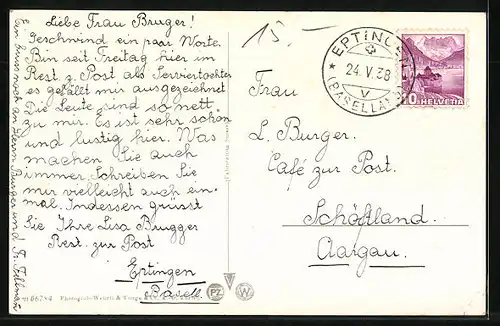 Liebe Frau Burger!
Geschwind ein paar Worte.
Bin seit Freitag hier im
Rest. z. Post als Serviertochter
es gefällt mir ausgezeichnet
Die Leute sind so nett
zu mir. Es ist sehr schön
und lustig hier. Was
machen Sie auch
immer. Schreiben Sie
mir vielleicht auch ein-
mal. Indessen grüsst
Sie Ihre Lisa Brugger
Rest. zur Post
Eptingen
Basell
Ein Gruss noch an Herrn Burger und Fr.
15.-
EPTINGEN
24.V.38
(BASELLAND)
HELVETIA
Frau
L. Burger.
Café zur Post.
Schöftland.
Aargau.
6674
Photogr.
PZ
W